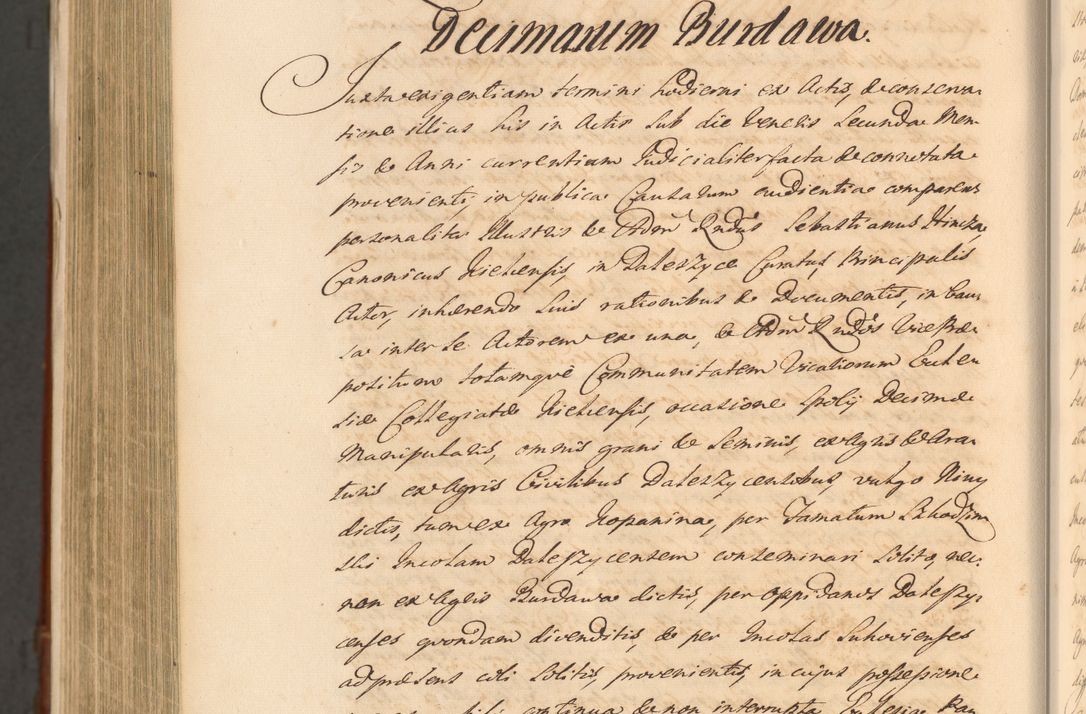 Decimarum Burdawa.
Juxta exigentiam termini hodierni ex Actis, & conserva-
tione illius his in Actis sub die Veneris Secunda Men-
sis & Anni currentium Judicialiter facta & connotata
provenienti, in publica Causarum audientia comparens
personaliter Illustris & Adm Rndus Sebastianus
Canonicus Kielcensis, in Daleszyce Curatus, Principalis
Actor, inhærendo suis rationibus & Documentis, in Cau-
sa inter se Actorem ex una, & Adm Rndos Vice Præ-
positum totamque Communitatem Vicariorum Eccle-
siæ Collegiatæ Kielcensis, occasione spolij Decimæ
Manipularis, omnis grani & Seminis, ex Agris & Ara-
turis ex Agris Civilibus Daleszycensibus, vulgo Niwy
dictis, tum ex Agro Kopanina, per Famatum
ski Incolam Daleszycensem conseminari solito, nec-
non ex Agris Burdawa dictis, per oppidanos Daleszy-
censes quondam divenditis, & per Incolas Sukovienses
ad præsens coli solitis, provenientis, in cujus possessione
continua & non interrupta Ecclesia Pa-